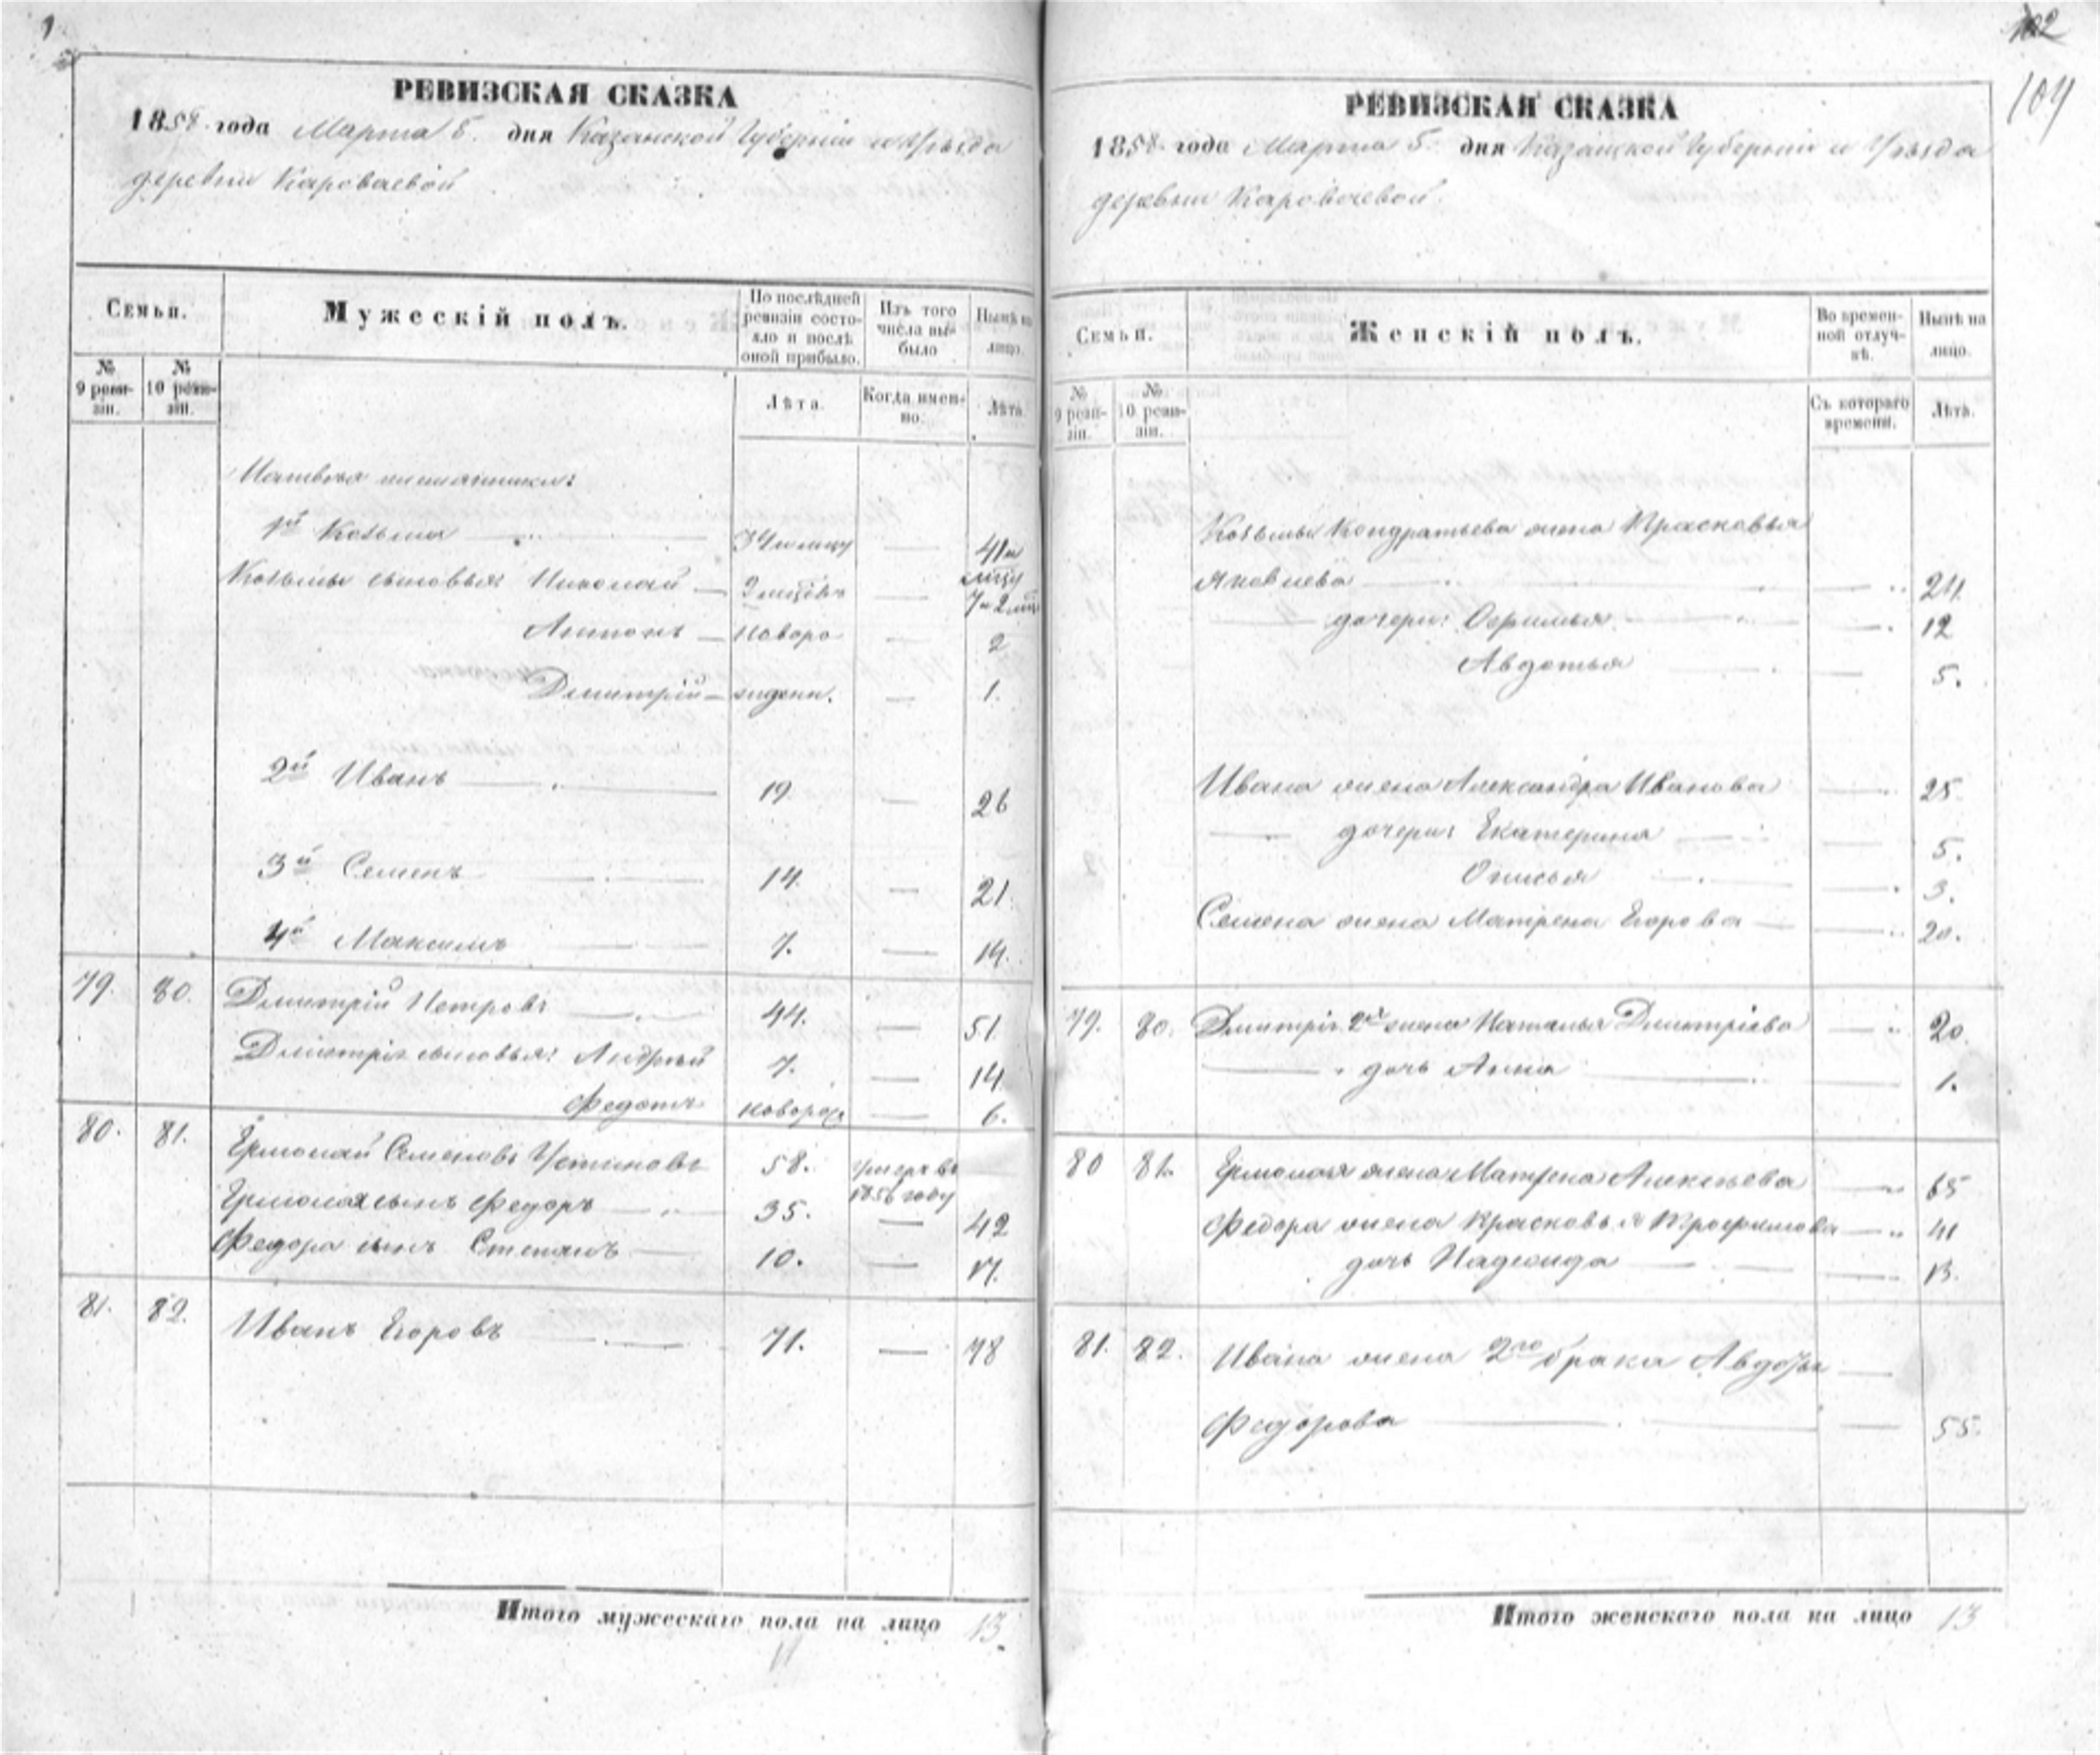 1
РЕВИЗСКАЯ СКАЗКА
1858 года Марта 5. дня Казанской Губерніи и Уѣзда
деревни Караваевой
Семьи.
Мужескій полъ.
По послѣдней ревизіи состояло и послѣ оной прибыло.
Изъ того числа выбыло
Нынѣ на лицо.
№ 9 ревизіи.
№ 10 ревизіи.
Лѣта.
Когда именно.
Лѣта.
племянники:
1й Козьма 34 41 и
Козьмы сыновья: Николай 7 и 2
Антонъ новоро 2
Дмитрій жденн. 1.
2й Иванъ 19 26
3й Семенъ 14 21.
4й Максимъ 7. 14.
79. 80. Дмитрій Петровъ 44. 51.
Дмитрія сыновья: Андрей 7. 14
Федотъ новорож 6.
80. 81. Ермолай Семеновъ Устиновъ 58. умеръ въ
1856 году
Ермолая сынъ Федоръ 35. 42
Федора сынъ Степанъ 10. 17.
81. 82. Иванъ Егоровъ 71. 78
Итого мужескаго пола на лицо 13.
102
104
РЕВИЗСКАЯ СКАЗКА
1858 года Марта 5. дня Казанской Губерніи и Уѣзда
деревни Караваевой.
Семьи.
Женскій полъ.
Во временной отлучкѣ.
Нынѣ на лицо.
№ 9 ревизіи.
№ 10 ревизіи.
Съ котораго времени.
Лѣта.
Козьмы Кондратьева жена Прасковья
Яковлева 24.
дочери: 12
Авдотья 5.
Ивана жена Александра Иванова 25.
дочери: Екатерина 5.
3.
Семена жена Матрена Егорова 20.
79. 80. Дмитрія 2я жена Наталья Дмитріева 20.
дочь Анна 1.
80 81. Ермолая жена Матрена Алексѣева 65
Федора жена Прасковья Трофимова 41
дочь Надежда 13.
81. 82. Ивана жена 2го брака Авдотья
Федорова 55.
Итого женскаго пола на лицо 13